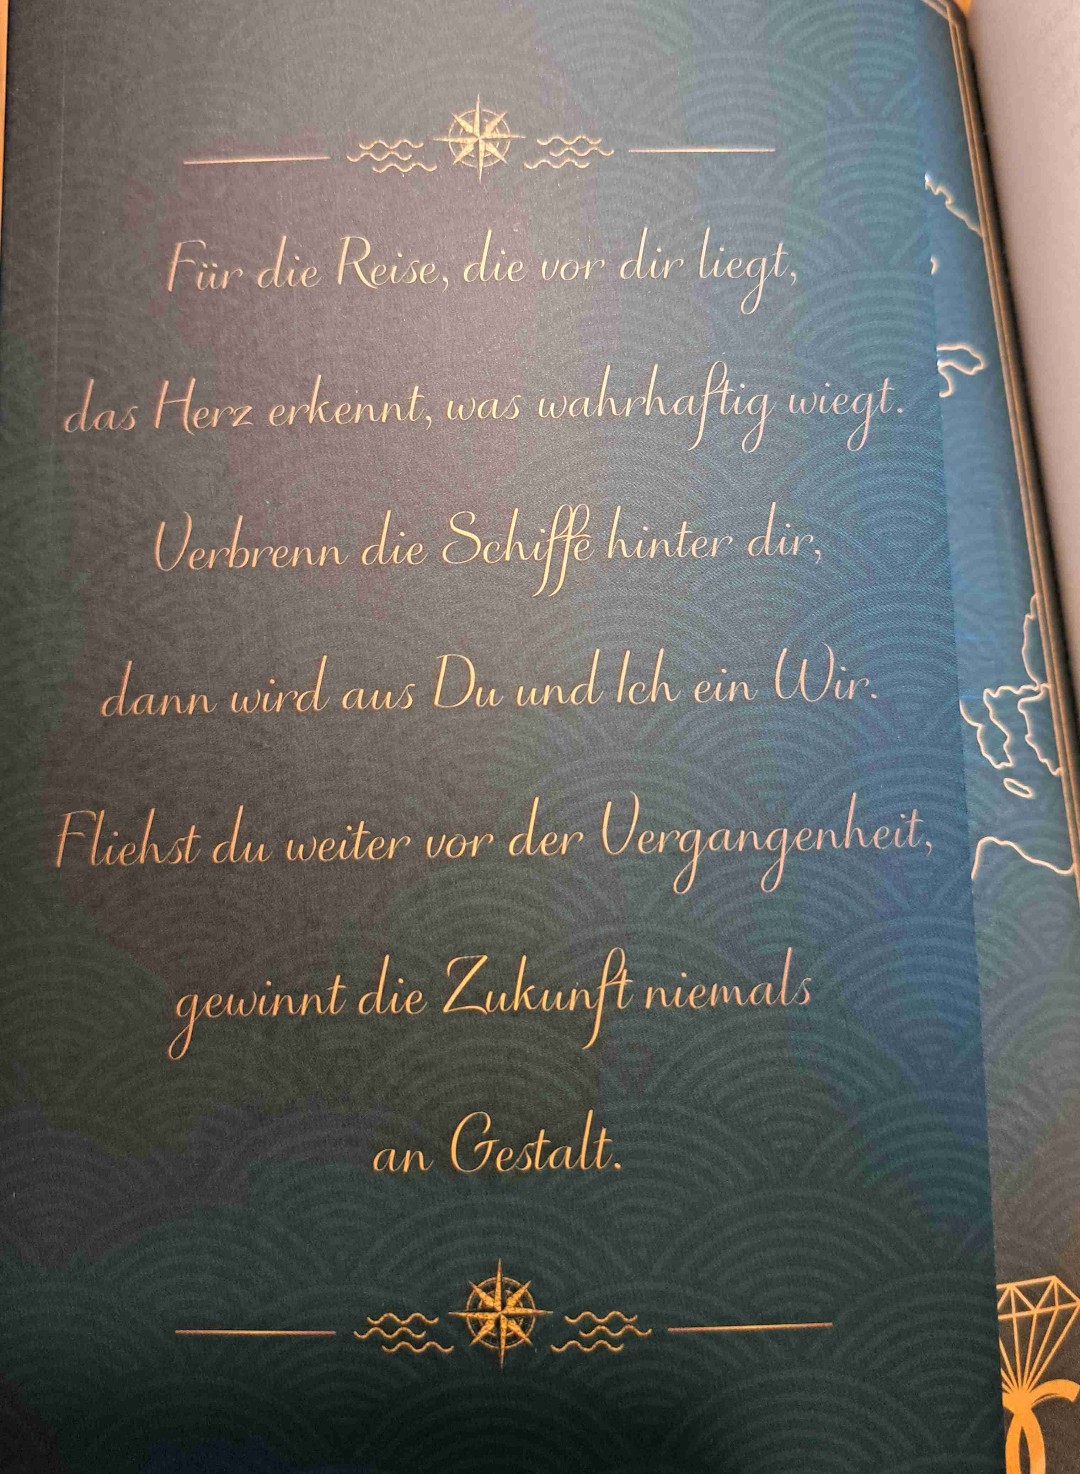 Für die Reise, die vor dir liegt,
das Herz erkennt, was wahrhaftig wiegt.
Verbrenn die Schiffe hinter dir,
dann wird aus Du und Ich ein Wir.
Fliehst du weiter vor der Vergangenheit,
gewinnt die Zukunft niemals
an Gestalt.